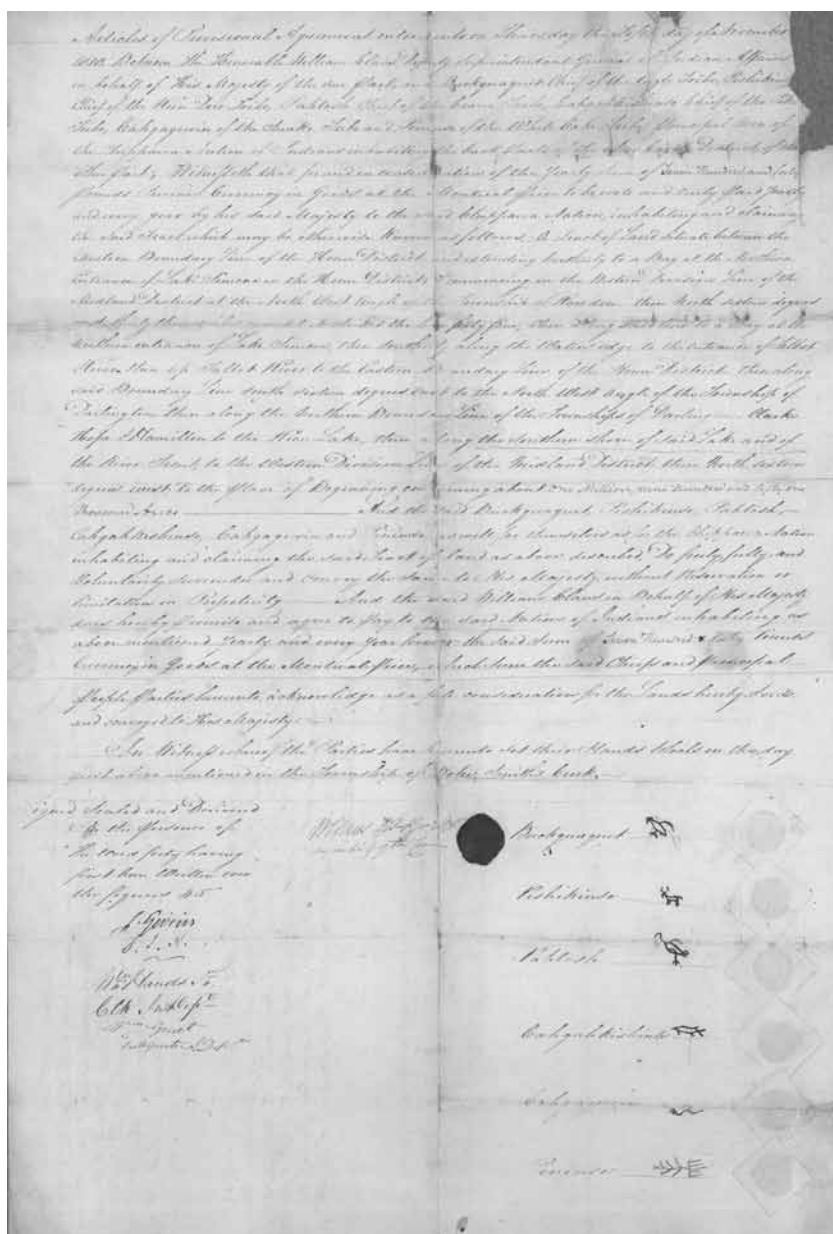 Articles of Provisional Agreement entered into on Thursday the fifth day of November
1818 Between The Honorable William Claus Deputy Superintendent General of Indian Affairs
in behalf of His Majesty of the one Part, and Buckquaquet Chief of the Eagle Tribe, Pishikinse
Chief of the Rein Deer Tribe, Pahtosh Chief of the Crane Tribe, Cahgahkishinse Chief of the Pike
Tribe, Cahgagewin of the Snake Tribe and Pininse of the White Oak Tribe, Principal Men of
the Chippewa Nation of Indians inhabiting the back Parts of the New Castle District of the
other Part, Witnesseth that for and in consideration of the Yearly sum of Seven Hundred and forty
pounds Province Currency in Goods at the Montreal price to be well and truly paid yearly
and every year by his said Majesty to the said Chippewa Nation, inhabiting and claiming
the said Tract which may be otherwise Known as follows A Tract of Land situate between the
Western Boundary Line of the Home District and extending Northerly to a Bay at the Northern
entrance of Lake Simcoe in the Home District, Commencing in the Western Division Line of the
Midland District at the North West angle of the Township of Rawdon then North sixteen degrees
forty five, then along said line to a Bay at the
Northern entrance of Lake Simcoe then southerly along the Waters edge to the entrance of Talbot
River then up Talbot River to the Eastern Boundary Line of the Home District then along
said Boundary Line south sixteen degrees East to the North West angle of the Township of
Darlington then along the Northern Boundary Line of the Townships of Darlington Clarke
Hope & Hamilton to the Rice Lake, then along the Southern Shore of said Lake and of
the River Trent to the Western Division Line of the Midland District then North sixteen
degrees west to the Place of Beginning containing about One Million, nine hundred and fifty one
Thousand Acres And the said Buckquaquet, Pishikinse, Pahtosh,
Cahgahkishinse, Cahgagewin and Pininse, as well for themselves as for the Chippewa Nation
inhabiting and claiming the said Tract of land as above described, Do freely, fully, and
Voluntarily surrender and convey the same to His Majesty without Reservation or
limitation in Perpetuity And the said William Claus in Behalf of His Majesty
does hereby Promise and agree to pay to the said Nation of Indians inhabiting as
above mentioned Yearly and every Year forever the said sum of Seven Hundred & forty Pounds
Currency in Goods at the Montreal Price, which sum the said Chiefs and Principal
People Parties hereunto, acknowledge as a full consideration for the Lands hereby Sold
and conveyed to His Majesty.
In Witness whereof the Parties have hereunto set their Hands & Seals on the day
first above mentioned in the Township of Hope Smith's Creek.
Signed Sealed and Delivered
In the Presence of
The word forty having
first been Written over
the figures
J. Givins
S. I. A.
Wm Hands Sr
Clk Ind Dept
Wm Gruet
Interpreter Ind Dept
W Claus
Buckquaquet
Pishikinse
Pahtosh
Cahgahkishinse
Cahgagewin
Pininse